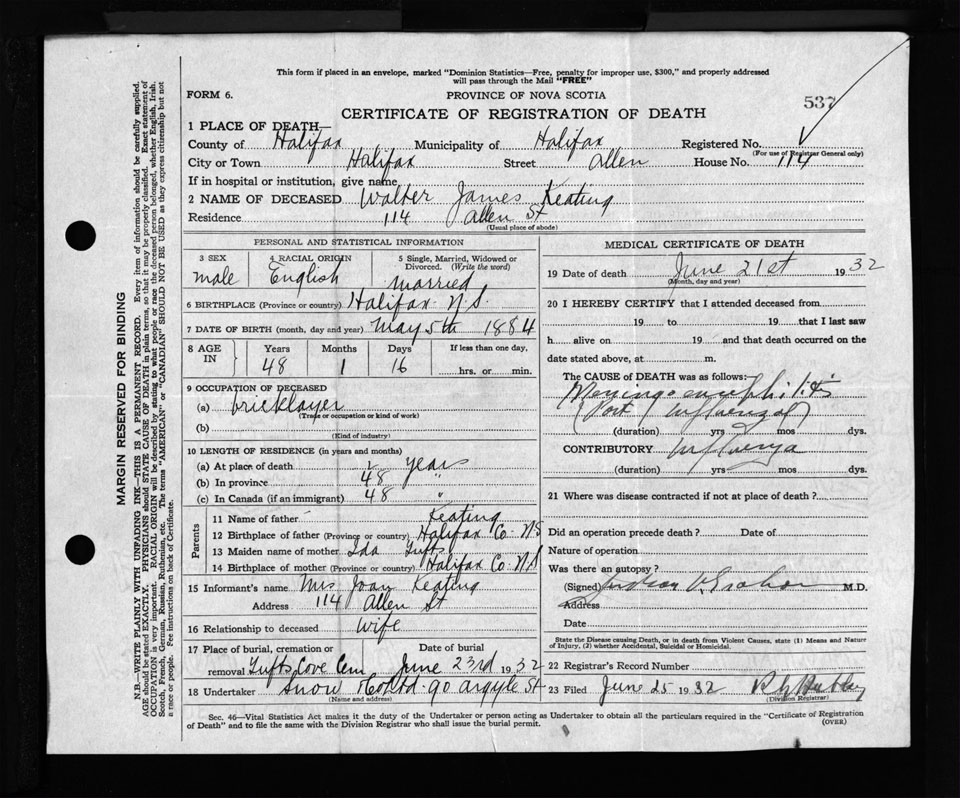 This form if placed in an envelope, marked "Dominion Statistics—Free, penalty for improper use, $300," and properly addressed
will pass through the Mail "FREE"
FORM 6.
PROVINCE OF NOVA SCOTIA
537
CERTIFICATE OF REGISTRATION OF DEATH
1 PLACE OF DEATH—
County of Halifax Municipality of Halifax Registered No.
(For use of Registrar General only)
City or Town Halifax Street Allen House No. 114
If in hospital or institution, give name
2 NAME OF DECEASED Walter James Keating
Residence 114 Allen St
(Usual place of abode)
PERSONAL AND STATISTICAL INFORMATION
3 SEX male
4 RACIAL ORIGIN English
5 Single, Married, Widowed or Divorced. (Write the word) married
6 BIRTHPLACE (Province or country) Halifax N.S.
7 DATE OF BIRTH (month, day and year) May 5th 1884
8 AGE IN Years Months Days If less than one day,
48 1 16 hrs. or min.
9 OCCUPATION OF DECEASED
(a) bricklayer
(Trade or occupation or kind of work)
(b)
(Kind of industry)
10 LENGTH OF RESIDENCE (in years and months)
(a) At place of death years
(b) In province 48 "
(c) In Canada (if an immigrant) 48 "
Parents
11 Name of father Keating
12 Birthplace of father (Province or country) Halifax Co. N.S
13 Maiden name of mother Ida Tufts
14 Birthplace of mother (Province or country) Halifax Co. N.S
15 Informant's name Mrs Joan Keating
Address 114 Allen St
16 Relationship to deceased wife
17 Place of burial, cremation or
removal Tufts Cove Cem June 23rd 1932
18 Undertaker Snow & Co Ltd. 90 Argyle St
(Name and address)
MEDICAL CERTIFICATE OF DEATH
19 Date of death June 21st 1932
(Month, day and year)
20 I HEREBY CERTIFY that I attended deceased from
19 to 19 that I last saw
h alive on 19 and that death occurred on the
date stated above, at m.
The CAUSE OF DEATH was as follows:
Meningo-encephilitis
(Post Influenzal)
(duration) yrs mos dys.
CONTRIBUTORY Influenza
(duration) yrs mos dys.
21 Where was disease contracted if not at place of death?
Did an operation precede death? Date of
Nature of operation
Was there an autopsy?
(Signed) M.D.
Address
Date
State the Disease causing Death, or in death from Violent Causes, state (1) Means and Nature
of Injury, (2) whether Accidental, Suicidal or Homicidal.
22 Registrar's Record Number
23 Filed June 25 1932
(Division Registrar)
Sec. 46—Vital Statistics Act makes it the duty of the Undertaker or person acting as Undertaker to obtain all the particulars required in the "Certificate of Registration
of Death" and to file the same with the Division Registrar who shall issue the burial permit. (OVER)
MARGIN RESERVED FOR BINDING
N.B.—WRITE PLAINLY WITH UNFADING INK—THIS IS A PERMANENT RECORD. Every item of information should be carefully supplied.
AGE should be stated EXACTLY. PHYSICIANS should STATE CAUSE OF DEATH in plain terms, so that it may be properly classified. Exact statement of
OCCUPATION is very important. RACIAL ORIGIN will be described by stating to what people or race the deceased person belonged, whether English, Irish,
Scotch, French, German, Russian, Ruthenian, etc. The terms "AMERICAN" or "CANADIAN" SHOULD NOT BE USED as they express citizenship but not
a race or people. Fee instructions on back of Certificate.